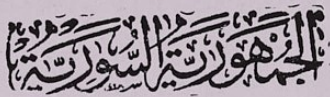 الجُمْهُورِيَّةِ السُّورِيَّة